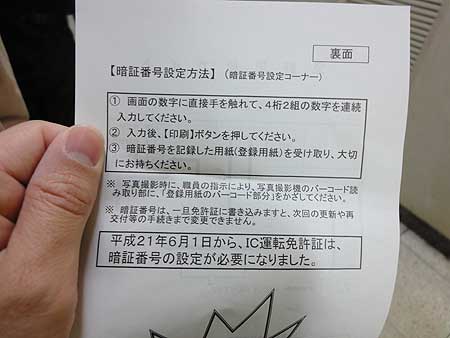 裏面
【暗証番号設定方法】（暗証番号設定コーナー）
① 画面の数字に直接手を触れて、4桁2組の数字を連続
入力してください。
② 入力後、【印刷】ボタンを押してください。
③ 暗証番号を記録した用紙(登録用紙)を受け取り、大切
にお持ちください。
※ 写真撮影時に、職員の指示により、写真撮影機のバーコード読
み取り部に、「登録用紙のバーコード部分」をかざしてください。
※ 暗証番号は、一旦免許証に書き込みますと、次回の更新や再
交付等の手続きまで変更できません。
平成21年6月1日から、IC運転免許証は、
暗証番号の設定が必要になりました。